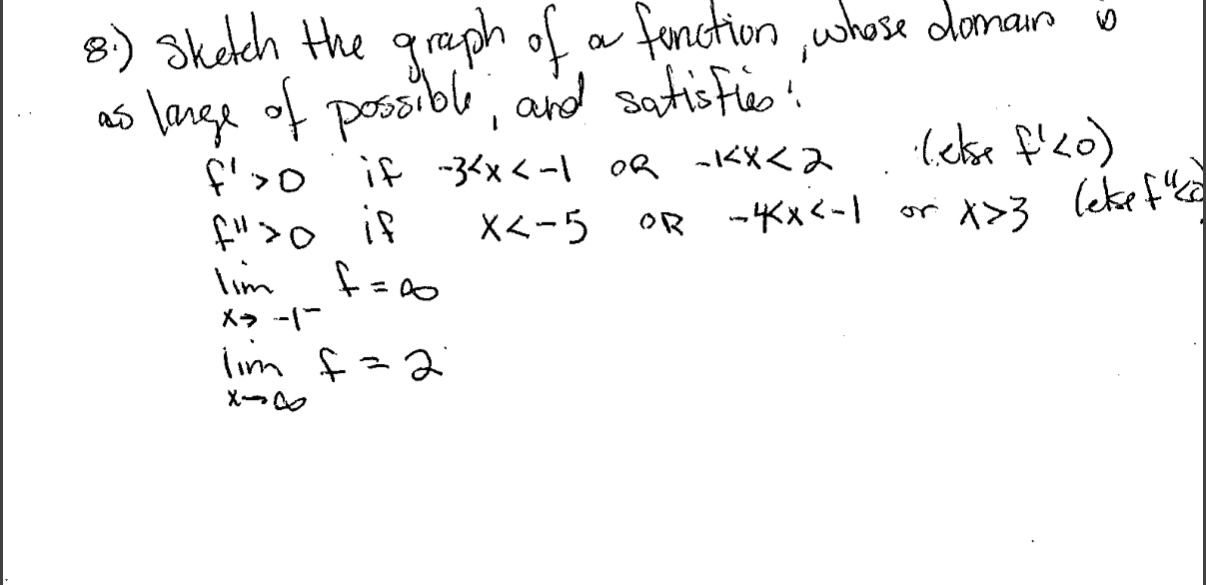 8.) Sketch the graph of a function, whose domain is
as large of possible, and satisfies:
f' > 0 if -3<x<-1 OR -1<x<2 (else f'<0)
f" > 0 if x<-5 OR -4<x<-1 or x>3 (else f"<0)
lim f = ∞
x→ -1⁻
lim f = 2
x→∞